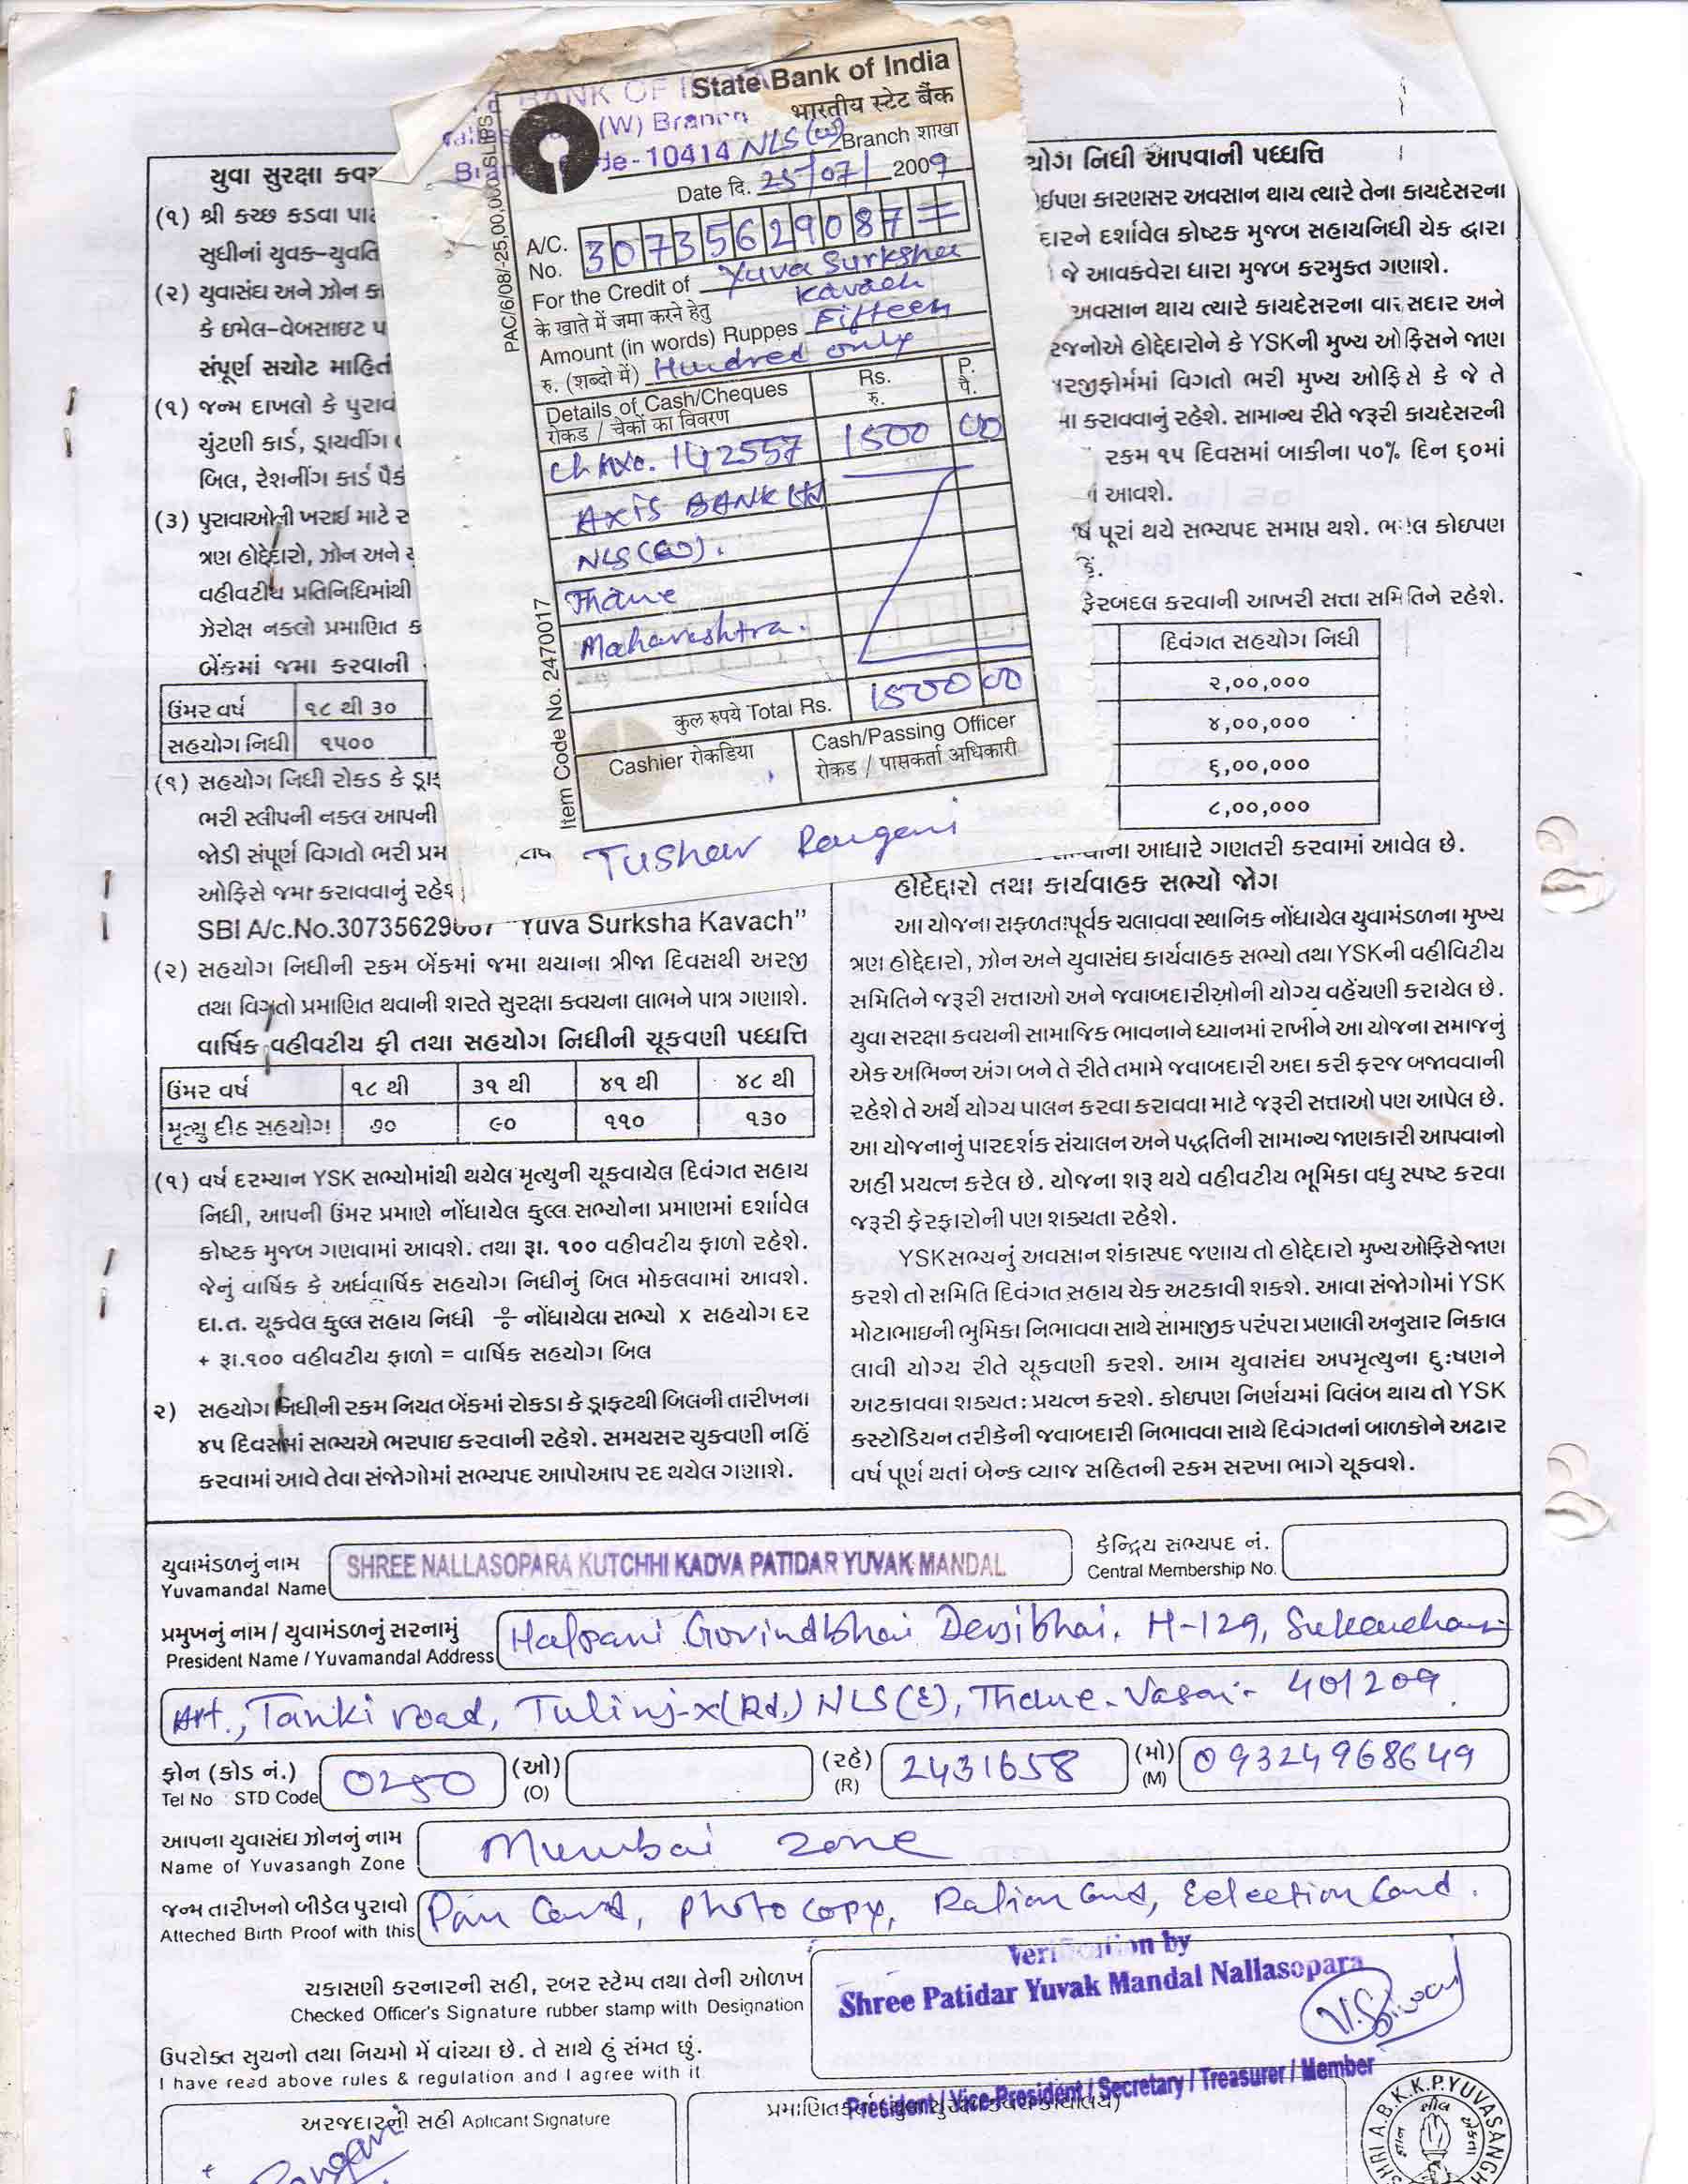 State Bank of India
भारतीय स्टेट बैंक
BANK OF
(W) Branch
de-10414 NLS (w) Branch शाखा
Date दि. 25/07/ 2009
A/C. No. 30735629087=
For the Credit of Yuva Surksha
के खाते में जमा करने हेतु Kavach
Amount (in words) Ruppes Fifteen
रु. (शब्दो में) Hundred only
Details of Cash/Cheques Rs. P.
रोकड / चेकों का विवरण रु. पै.
Ch No. 142557 1500 00
AXIS BANK Ltd
NLS (w).
Thane
Maharashtra.
कुल रुपये Total Rs. 1500 00
Cashier रोकडिया Cash/Passing Officer
रोकड / पासकर्ता अधिकारी
PAC/6/08/-25,00,000
Item Code No. 2470017
Tushar Rangani
યુવા સુરક્ષા કવચ
(૧) શ્રી કચ્છ કડવા
સુધીનાં યુવક-યુવતિ
(૨) યુવાસંઘ અને ઝોન
કે ઇમેલ-વેબસાઇટ
સંપૂર્ણ સચોટ માહિતી
(૧) જન્મ દાખલો કે
ચુંટણી કાર્ડ, ડ્રાયવીંગ
બિલ, રેશનીંગ કાર્ડ પૈકી
(૩) પુરાવાઓની ખરાઈ માટે
ત્રણ હોદ્દેદારો, ઝોન અને
વહીવટીય પ્રતિનિધિમાંથી
ઝેરોક્ષ નકલો પ્રમાણિત
બેંકમાં જમા કરવાની
ઉંમર વર્ષ ૧૮ થી ૩૦
સહયોગ નિધી ૧૫૦૦
(૧) સહયોગ નિધી રોકડ કે
ભરી સ્લીપની નકલ આપની
જોડી સંપૂર્ણ વિગતો ભરી
ઓફિસે જમા કરાવવાનું રહેશે
SBI A/c.No.30735629087 "Yuva Surksha Kavach"
(૨) સહયોગ નિધીની રકમ બેંકમાં જમા થયાના ત્રીજા દિવસથી અરજી
તથા વિગતો પ્રમાણિત થવાની શરતે સુરક્ષા કવચના લાભને પાત્ર ગણાશે.
વાર્ષિક વહીવટીય ફી તથા સહયોગ નિધીની ચૂકવણી પધ્ધતિ
ઉંમર વર્ષ ૧૮ થી ૩૧ થી ૪૧ થી ૪૮ થી
મૃત્યુ દીઠ સહયોગ ૭૦ ૯૦ ૧૧૦ ૧૩૦
(૧) વર્ષ દરમ્યાન YSK સભ્યોમાંથી થયેલ મૃત્યુની ચૂકવાયેલ દિવંગત સહાય
નિધી, આપની ઉંમર પ્રમાણે નોંધાયેલ કુલ્લ સભ્યોના પ્રમાણમાં દર્શાવેલ
કોષ્ટક મુજબ ગણવામાં આવશે. તથા રૂા. ૧૦૦ વહીવટીય ફાળો રહેશે.
જેનું વાર્ષિક કે અર્ધવાર્ષિક સહયોગ નિધીનું બિલ મોકલવામાં આવશે.
દા.ત. ચૂકવેલ કુલ્લ સહાય નિધી ÷ નોંધાયેલા સભ્યો x સહયોગ દર
+ રૂા.૧૦૦ વહીવટીય ફાળો = વાર્ષિક સહયોગ બિલ
૨) સહયોગ નિધીની રકમ નિયત બેંકમાં રોકડા કે ડ્રાફટથી બિલની તારીખના
૪૫ દિવસમાં સભ્યએ ભરપાઇ કરવાની રહેશે. સમયસર ચુકવણી નહિં
કરવામાં આવે તેવા સંજોગોમાં સભ્યપદ આપોઆપ રદ થયેલ ગણાશે.
યોગ નિધી આપવાની પધ્ધતિ
કારણસર અવસાન થાય ત્યારે તેના કાયદેસરના
દારને દર્શાવેલ કોષ્ટક મુજબ સહાયનિધી ચેક દ્વારા
જે આવકવેરા ધારા મુજબ કરમુક્ત ગણાશે.
અવસાન થાય ત્યારે કાયદેસરના વારસદાર અને
હોદ્દેદારોને કે YSKની મુખ્ય ઓફિસને જાણ
વિગતો ભરી મુખ્ય ઓફિસે કે જે તે
કરાવવાનું રહેશે. સામાન્ય રીતે જરૂરી કાયદેસરની
રકમ ૧૫ દિવસમાં બાકીના ૫૦% દિન ૬૦માં
આવશે.
પૂરાં થયે સભ્યપદ સમાપ્ત થશે. કોઇપણ
ફેરબદલ કરવાની આખરી સત્તા સમિતિને રહેશે.
દિવંગત સહયોગ નિધી
૨,૦૦,૦૦૦
૪,૦૦,૦૦૦
૬,૦૦,૦૦૦
૮,૦૦,૦૦૦
આધારે ગણતરી કરવામાં આવેલ છે.
હોદેદ્દારો તથા કાર્યવાહક સભ્યો જોગ
આ યોજના સફળતાપૂર્વક ચલાવવા સ્થાનિક નોંધાયેલ યુવામંડળના મુખ્ય
ત્રણ હોદ્દેદારો, ઝોન અને યુવાસંઘ કાર્યવાહક સભ્યો તથા YSKની વહીવિટીય
સમિતિને જરૂરી સત્તાઓ અને જવાબદારીઓની યોગ્ય વહેંચણી કરાયેલ છે.
યુવા સરક્ષા કવચની સામાજિક ભાવનાને ધ્યાનમાં રાખીને આ યોજના સમાજનું
એક અભિન્ન અંગ બને તે રીતે તમામે જવાબદારી અદા કરી ફરજ બજાવવાની
રહેશે તે અર્થે યોગ્ય પાલન કરવા કરાવવા માટે જરૂરી સત્તાઓ પણ આપેલ છે.
આ યોજનાનું પારદર્શક સંચાલન અને પદ્ધતિની સામાન્ય જાણકારી આપવાનો
અહીં પ્રયત્ન કરેલ છે. યોજના શરૂ થયે વહીવટીય ભૂમિકા વધુ સ્પષ્ટ કરવા
જરૂરી ફેરફારોની પણ શક્યતા રહેશે.
YSK સભ્યનું અવસાન શંકાસ્પદ જણાય તો હોદ્દેદારો મુખ્ય ઓફિસે જાણ
કરશે તો સમિતિ દિવંગત સહાય ચેક અટકાવી શકશે. આવા સંજોગોમાં YSK
મોટાભાઇની ભુમિકા નિભાવવા સાથે સામાજીક પરંપરા પ્રણાલી અનુસાર નિકાલ
લાવી યોગ્ય રીતે ચૂકવણી કરશે. આમ યુવાસંઘ અપમૃત્યુના દુઃષણને
અટકાવવા શક્યતઃ પ્રયત્ન કરશે. કોઇપણ નિર્ણયમાં વિલંબ થાય તો YSK
કસ્ટોડિયન તરીકેની જવાબદારી નિભાવવા સાથે દિવંગતનાં બાળકોને અઢાર
વર્ષ પૂર્ણ થતાં બેન્ક વ્યાજ સહિતની રકમ સરખા ભાગે ચૂકવશે.
યુવામંડળનું નામ SHREE NALLASOPARA KUTCHHI KADVA PATIDAR YUVAK MANDAL કેન્દ્રિય સભ્યપદ નં.
Yuvamandal Name Central Membership No.
પ્રમુખનું નામ / યુવામંડળનું સરનામું Halpani Govindbhai Devsibhai. H-129,
President Name / Yuvamandal Address
Tanki road, Tulinj-x(Rd.) NLS(E), Thane-Vasai- 401209.
ફોન (કોડ નં.) 0250 (ઓ) (રહે) 2431658 (મો) 09324968649
Tel No STD Code (O) (R) (M)
આપના યુવાસંઘ ઝોનનું નામ Mumbai zone
Name of Yuvasangh Zone
જન્મ તારીખનો બીડેલ પુરાવો Pan Card, photo copy, Ration Card, Eelection Card.
Atteched Birth Proof with this
Verification by
Shree Patidar Yuvak Mandal Nallasopara
ચકાસણી કરનારની સહી, રબર સ્ટેમ્પ તથા તેની ઓળખ
Checked Officer's Signature rubber stamp with Designation
ઉપરોક્ત સુચનો તથા નિયમો મેં વાંચ્યા છે. તે સાથે હું સંમત છું.
I have read above rules & regulation and I agree with it
President / Vice-President / Secretary / Treasurer / Member
અરજદારની સહી Aplicant Signature
SHRI A.B.K.K.P.YUVASANGH